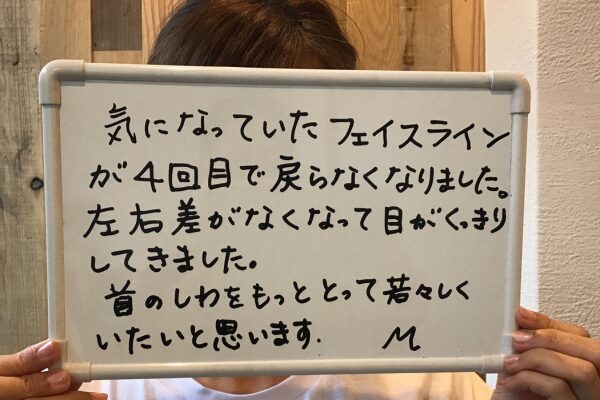 気になっていたフェイスライン
が4回目で戻らなくなりました。
左右差がなくなって目がくっきり
してきました。
首のしわをもっととって若々しく
いたいと思います.
M